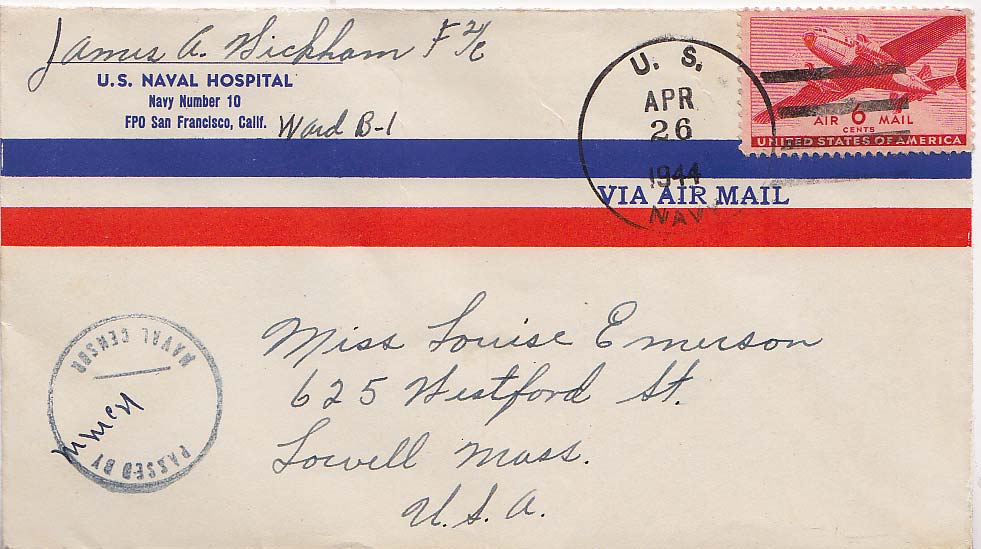 James A. Wickham F 2/c
U.S. NAVAL HOSPITAL
Navy Number 10
FPO San Francisco, Calif. Ward B-1
U. S.
APR
26
1944
NAVY
AIR 6 MAIL
CENTS
UNITED STATES OF AMERICA
VIA AIR MAIL
Miss Louise Emerson
625 Westford St.
Lowell Mass.
U.S.A.
PASSED BY
NAVAL CENSOR